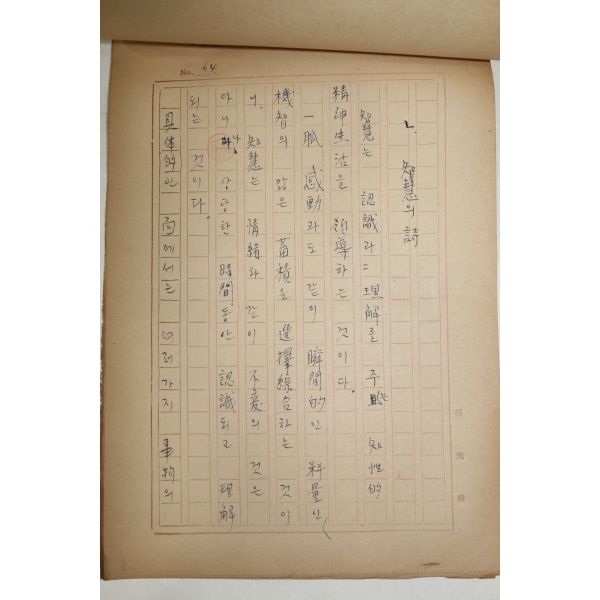 No. 64
ㄴ. 智慧의 詩
智慧는 認識과 理解를 주는 知性的
精神生活을 領導하는 것이다.
一脈 感動과도 같이 瞬間的인 料量인
機智의 많은 蓄積을 選擇綜合하는 것이
니, 知慧는 情緖와 같이 不変의 것은
아니나 상당한 時間동안 認識되고 理解
되는 것이다.
具体的인 面에서는 여러가지 事物의